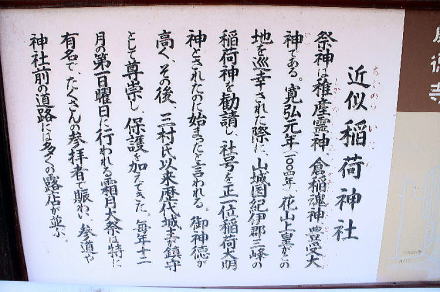 近似稲荷神社
祭神は稚産霊神 倉稲魂神 豊受大
神である。寛弘元年一〇〇四年、花山上皇がこの
地を巡幸された際に、山城国紀伊郡三峰の
稲荷神を勧請し、社号を正一位稲荷大明
神とされたのに始まったと言われる。御神徳が
高く、その後、三村氏以来歴代城主が鎮守
として尊崇し、保護を加えてきた。毎年十二
月の第一日曜日に行われる霜月大祭は特に
有名で、たくさんの参拝者で賑わい、参道や
神社前の道路には多くの露店が並ぶ。